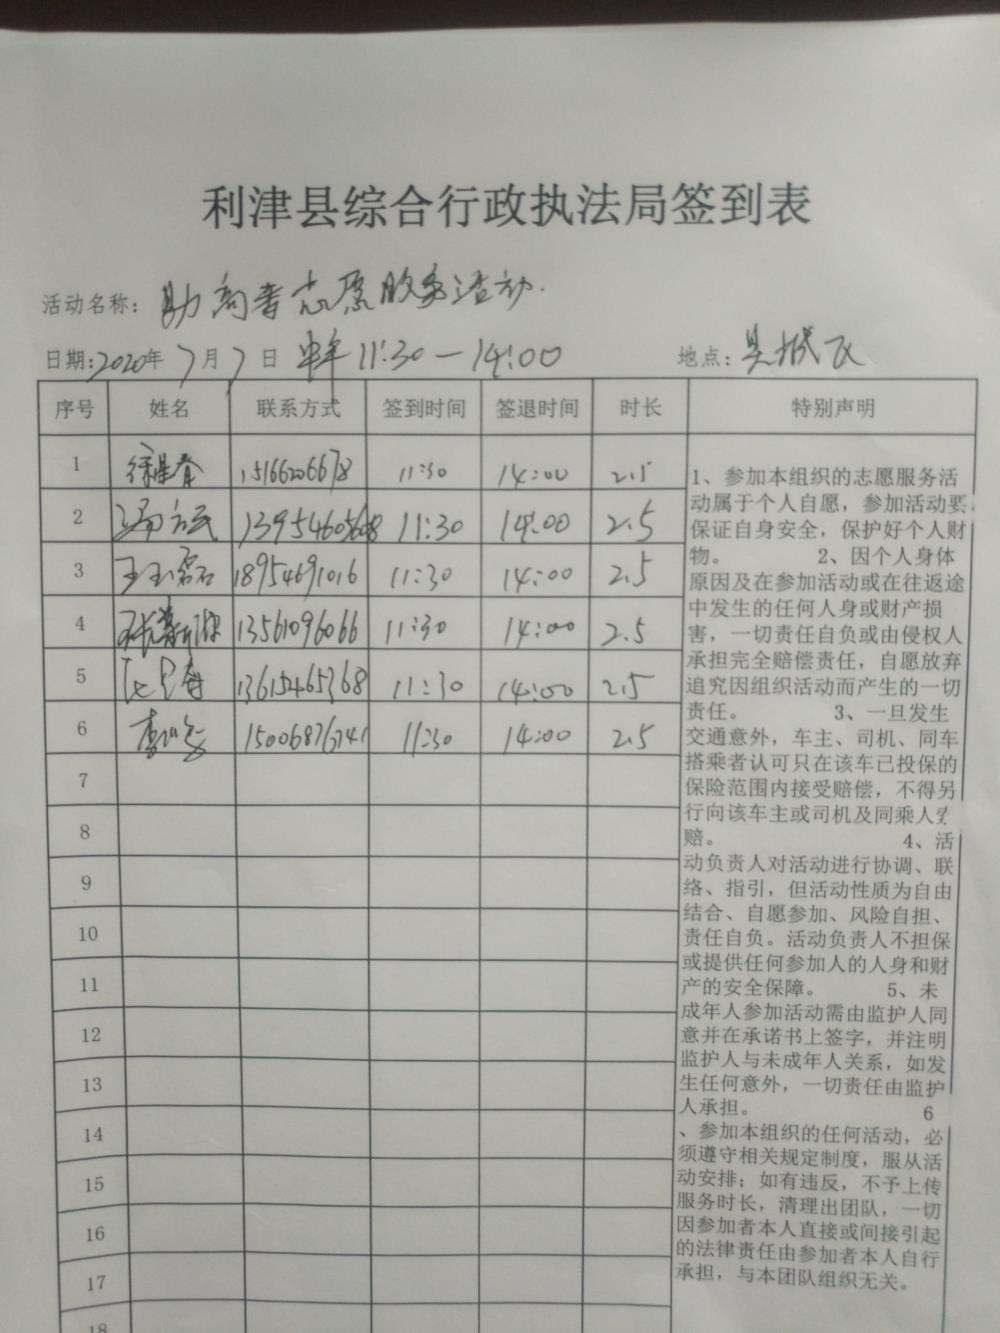 利津县综合行政执法局签到表
活动名称: 助高考志愿服务活动.
日期:2020年7月7日 11:30—14:00 地点: 县城区
序号 姓名 联系方式 签到时间 签退时间 时长 特别声明
1 15166206678 11:30 14:00 2.5
2 13954605608 11:30 14:00 2.5
3 王玉磊 18954691016 11:30 14:00 2.5
4 13561096066 11:30 14:00 2.5
5 13615465368 11:30 14:00 2.5
6 11:30 14:00 2.5
7
8
9
10
11
12
13
14
15
16
17
18
1、参加本组织的志愿服务活
动属于个人自愿，参加活动要
保证自身安全，保护好个人财
物。 2、因个人身体
原因及在参加活动或在往返途
中发生的任何人身或财产损
害，一切责任自负或由侵权人
承担完全赔偿责任，自愿放弃
追究因组织活动而产生的一切
责任。 3、一旦发生
交通意外，车主、司机、同车
搭乘者认可只在该车已投保的
保险范围内接受赔偿，不得另
行向该车主或司机及同乘人索
赔。 4、活
动负责人对活动进行协调、联
络、指引，但活动性质为自由
结合、自愿参加、风险自担、
责任自负。活动负责人不担保
或提供任何参加人的人身和财
产的安全保障。 5、未
成年人参加活动需由监护人同
意并在承诺书上签字，并注明
监护人与未成年人关系，如发
生任何意外，一切责任由监护
人承担。 6
、参加本组织的任何活动，必
须遵守相关规定制度，服从活
动安排；如有违反，不予上传
服务时长，清理出团队，一切
因参加者本人直接或间接引起
的法律责任由参加者本人自行
承担，与本团队组织无关。